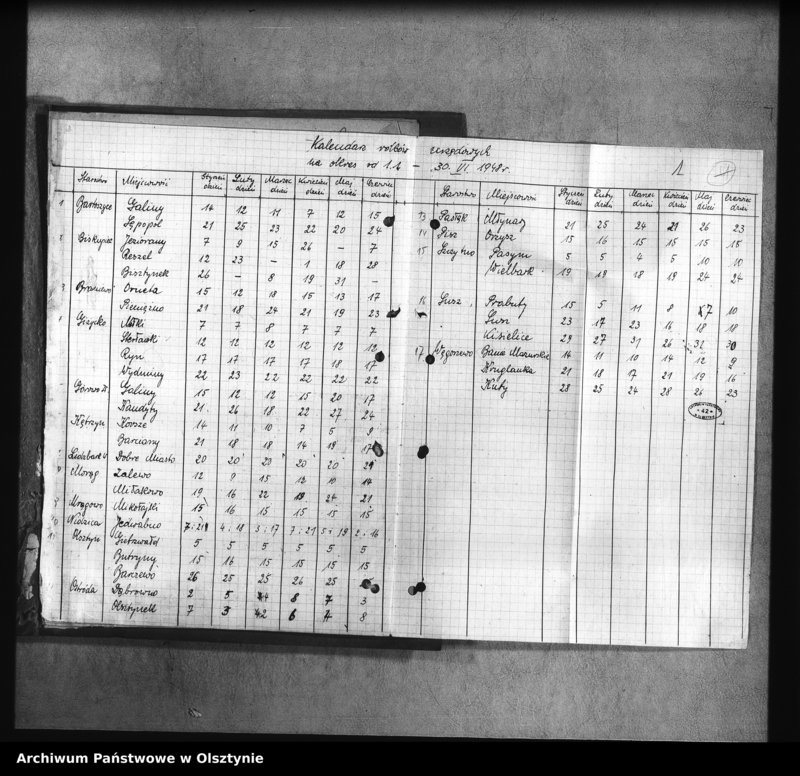 Kalendarz roków urzędowych
na okres od 1.1. - 30.VI.1948r.
1
Starostwo Miejscowość Styczeń dzień Luty dzień Marzec dzień Kwiecień dzień Maj dzień Czerwiec dzień
1 Bartoszyce Galiny 14 12 11 7 12 15
Sępopol 21 25 23 22 20 24
2 Biskupiec Jeziorany 7 9 15 26 - 7
Reszel 12 23 - 1 18 28
Bisztynek 26 - 8 19 31 -
3 Braniewo Orneta 15 12 18 15 13 17
Pieniężno 21 18 24 21 19 23
Giżycko Miłki 7 7 8 7 7 7
12 12 12 12 12 12
Ryn 17 17 17 17 18 17
Wydminy 22 23 22 22 22 22
Galiny 15 12 12 15 20 17
Kandyty 21 26 18 22 27 24
Kętrzyn Korsze 14 11 10 7 5 9
Barciany 21 18 18 14 19 17
Lidzbark W. Dobre Miasto 20 20 20 20 20 21
Morąg Zalewo 12 9 15 12 10 14
Miłakowo 19 16 22 19 24 21
Mrągowo Mikołajki 15 16 15 15 15 15
Nidzica Jedwabno 7 i 21 4 i 18 3 i 17 7 i 21 5 i 19 2 i 16
Olsztyn Gutzwałd 5 5 5 5 5 5
Butryny 15 16 15 15 15 15
Barczewo 26 25 25 26 25
Ostróda Dąbrówno 2 5 8 7 3
Olsztynek 7 3 6 8
Starostwo Miejscowość Styczeń dzień Luty dzień Marzec dzień Kwiecień dzień Maj dzień Czerwiec dzień
13 Pasłęk Młynary 21 25 24 21 26 23
14 Pisz Orzysz 15 16 15 15 15 15
15 Szczytno Pasym 5 5 4 5 10 10
Wielbark 19 19 18 19 24 24
16 Susz Prabuty 15 5 11 8 7 10
Susz 23 17 23 16 18 18
Kisielice 29 27 31 26 30
17 Węgorzewo Banie Mazurskie 14 11 10 14 12 9
Kruglanka 21 18 17 21 19 16
Kuty 28 25 24 28 26 23
42
Archiwum Państwowe w Olsztynie